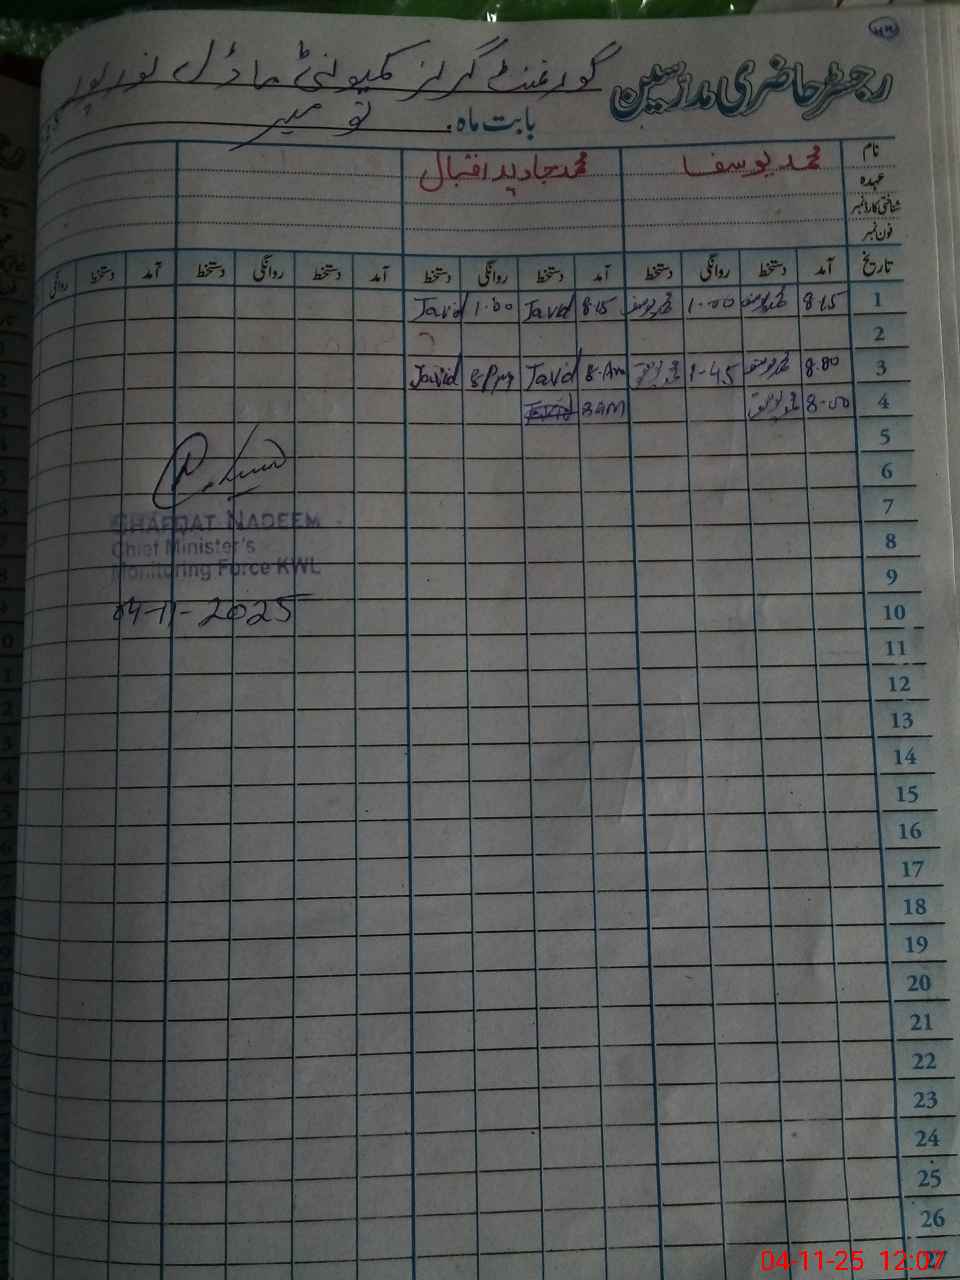 رجسٹر حاضری مدرسین گورنمنٹ گرلز کمیونٹی ماڈل نور پور
بابت ماہ نومبر
نام محمد یوسف محمد جاوید اقبال
عہدہ
شناختی کارڈ نمبر
فون نمبر
تاریخ آمد دستخط روانگی دستخط آمد دستخط روانگی دستخط آمد دستخط روانگی دستخط آمد دستخط روانگی
1 8-15 محمد یوسف 1-00 محمد یوسف 8-15 Javid 1-00 Javid
2
3 8.00 محمد یوسف 1-45 محمد یوسف 8-Am Javid Javid
4 8-00 محمد یوسف 8AM Javid
5
6
7
SHAFQAT NADEEM
8
Chief Minister's
Monitoring Force KWL
9
04-11-2025
10
11
12
13
14
15
16
17
18
19
20
21
22
23
24
25
26
27
04-11-25 12:07